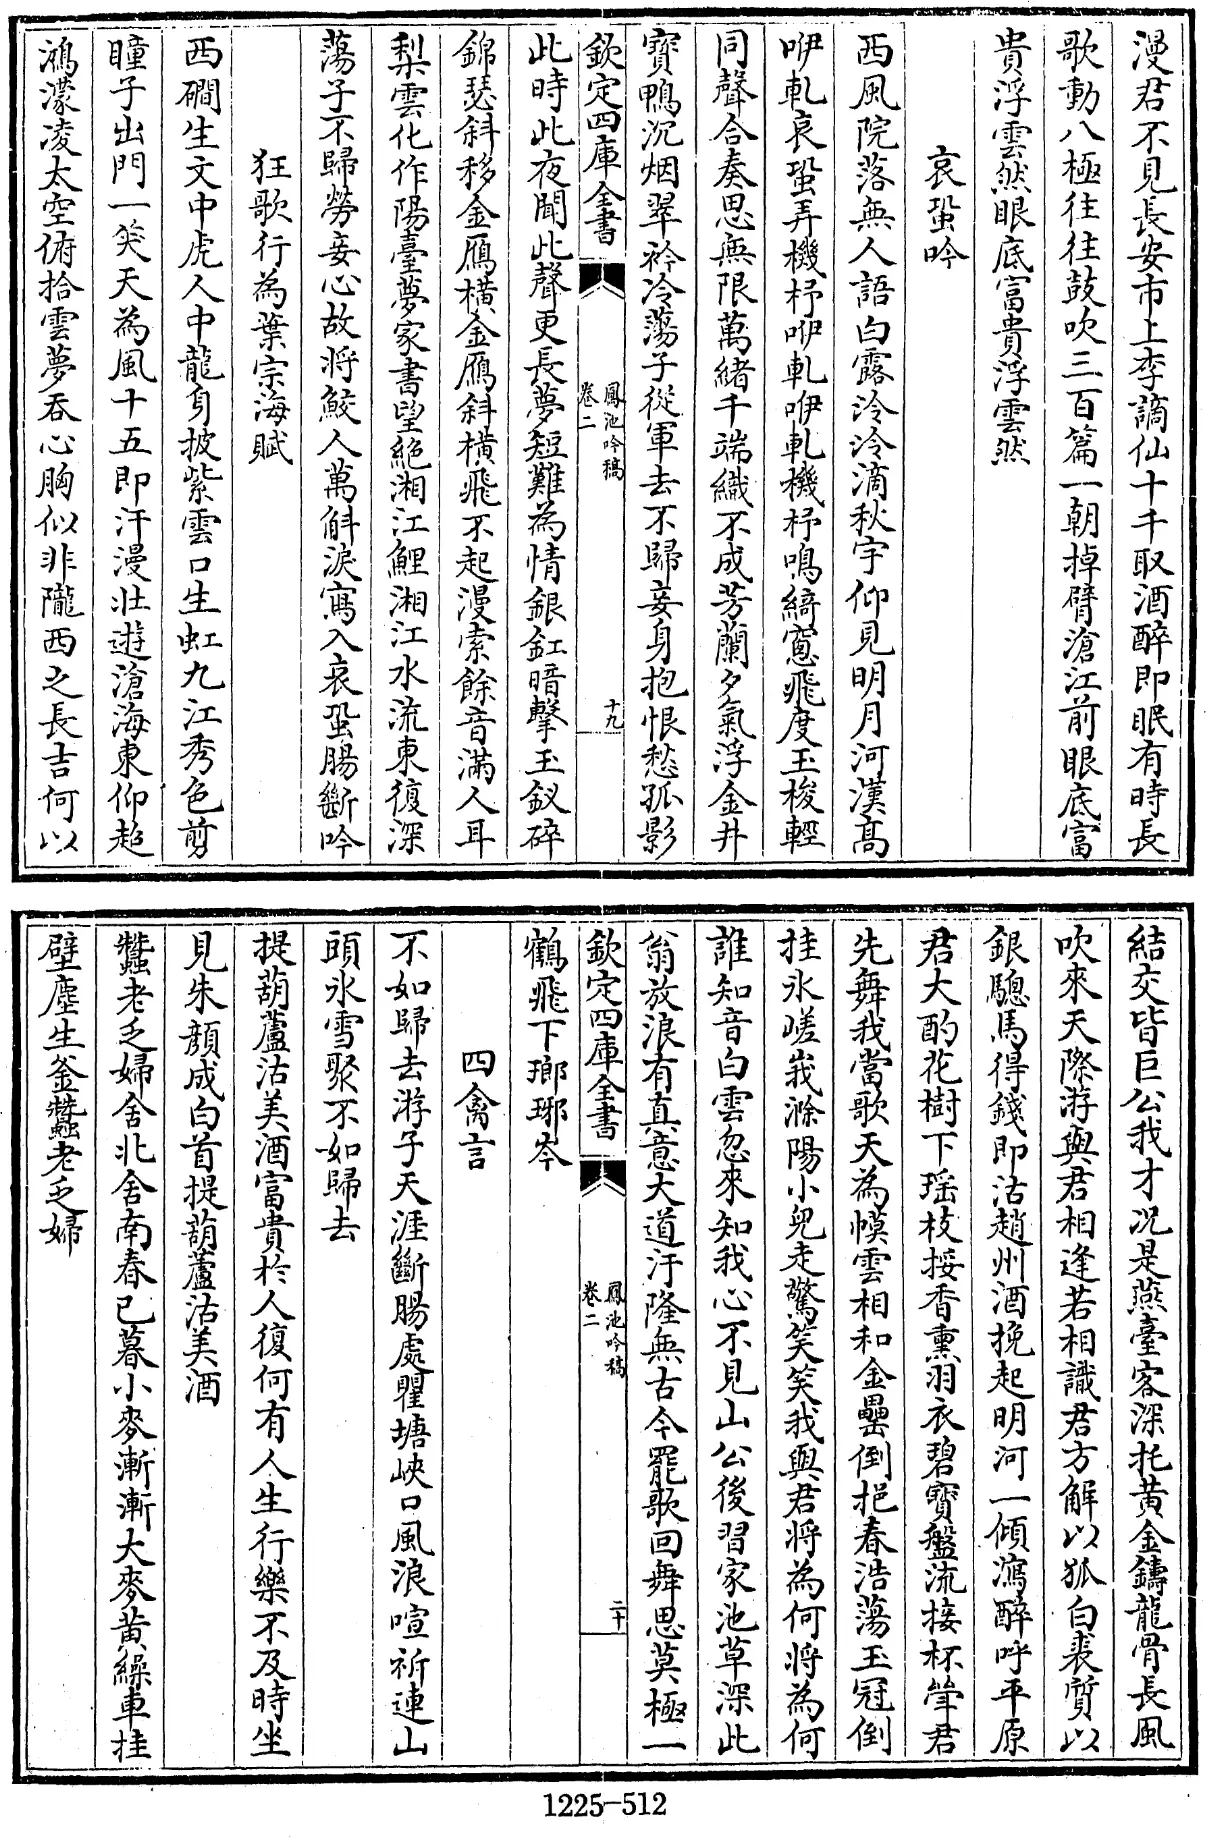 漫君不見長安市上李謫仙十千取酒醉即眠有時長
歌動八極往往鼓吹三百篇一朝掉臂滄江前眼底富
貴浮雲然眼底富貴浮雲然
哀蛩吟
西風院落無人語白露泠泠滴秋宇仰見明月河漢髙
咿軋哀蛩弄機杼咿軋咿軋機杼鳴綺窻飛度玉梭輕
同聲合奏思無限萬緒千端織不成芳蘭夕氣浮金井
寳鴨沉烟翠衿冷蕩子從軍去不歸妾身抱恨愁孤影
欽定四庫全書
鳳池吟稿
卷二
十九
此時此夜聞此聲更長夢短難為情銀釭暗擊玉釵碎
錦瑟斜移金鴈橫金鴈斜橫飛不起漫索餘音滿人耳
梨雲化作陽臺夢家書望絶湘江鯉湘江水流東復深
蕩子不歸勞妾心故將鮫人萬斛淚寫入哀蛩腸斷吟
狂歌行為葉宗海賦
西磵生文中虎人中龍身披紫雲口生虹九江秀色剪
瞳子出門一笑天為風十五即汗漫壯遊滄海東仰超
鴻濛凌太空俯拾雲夢吞心胸似非隴西之長吉何以
結交皆巨公我才况是燕臺客深托黄金鑄龍骨長風
吹來天際游與君相逢若相識君方解以狐白裘質以
銀驄馬得錢即沽趙州酒挽起明河一傾瀉醉呼平原
君大酌花樹下瑶枝接香熏羽衣碧寳盤流接杯聳君
先舞我當歌天為幙雲相和金罍倒挹春浩蕩玉冠倒
挂氷嵯峩滁陽小兒走驚笑笑我與君將為何將為何
誰知音白雲忽來知我心不見山公後習家池草深此
翁放浪有真意大道汙隆無古今罷歌回舞思莫極一
欽定四庫全書
鳳池吟稿
卷二
二十
鶴飛下瑯琊岑
四禽言
不如歸去游子天涯斷腸處瞿塘峽口風浪喧祈連山
頭氷雪聚不如歸去
提葫蘆沽美酒富貴於人復何有人生行樂不及時坐
見朱顔成白首提葫蘆沽美酒
蠶老乏婦舍北舍南春已暮小麥漸漸大麥黄繰車挂
壁塵生釜蠶老乏婦
1225-512